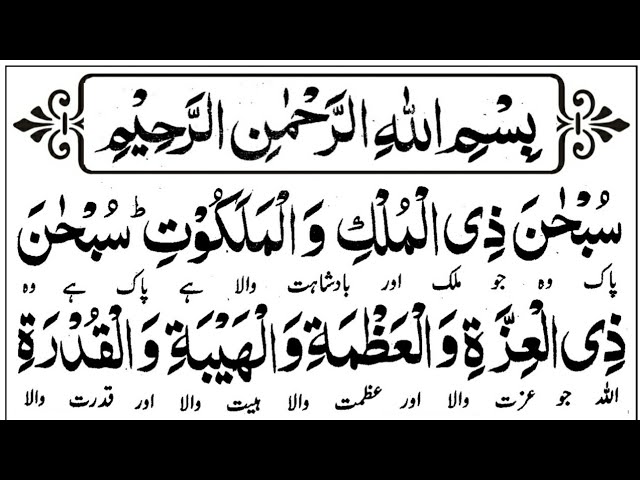 بِسْمِ اللّٰهِ الرَّحْمٰنِ الرَّحِيْمِ
سُبْحٰنَ ذِی الْمُلْكِ وَ الْمَلَكُوْتِ ؕ سُبْحٰنَ
پاک وہ جو ملک اور بادشاہت والا ہے پاک ہے وہ
ذِی الْعِزَّةِ وَ الْعَظْمَةِ وَ الْهَيْبَةِ وَ الْقُدْرَةِ
اللہ جو عزت والا اور عظمت والا ہیبت والا اور قدرت والا